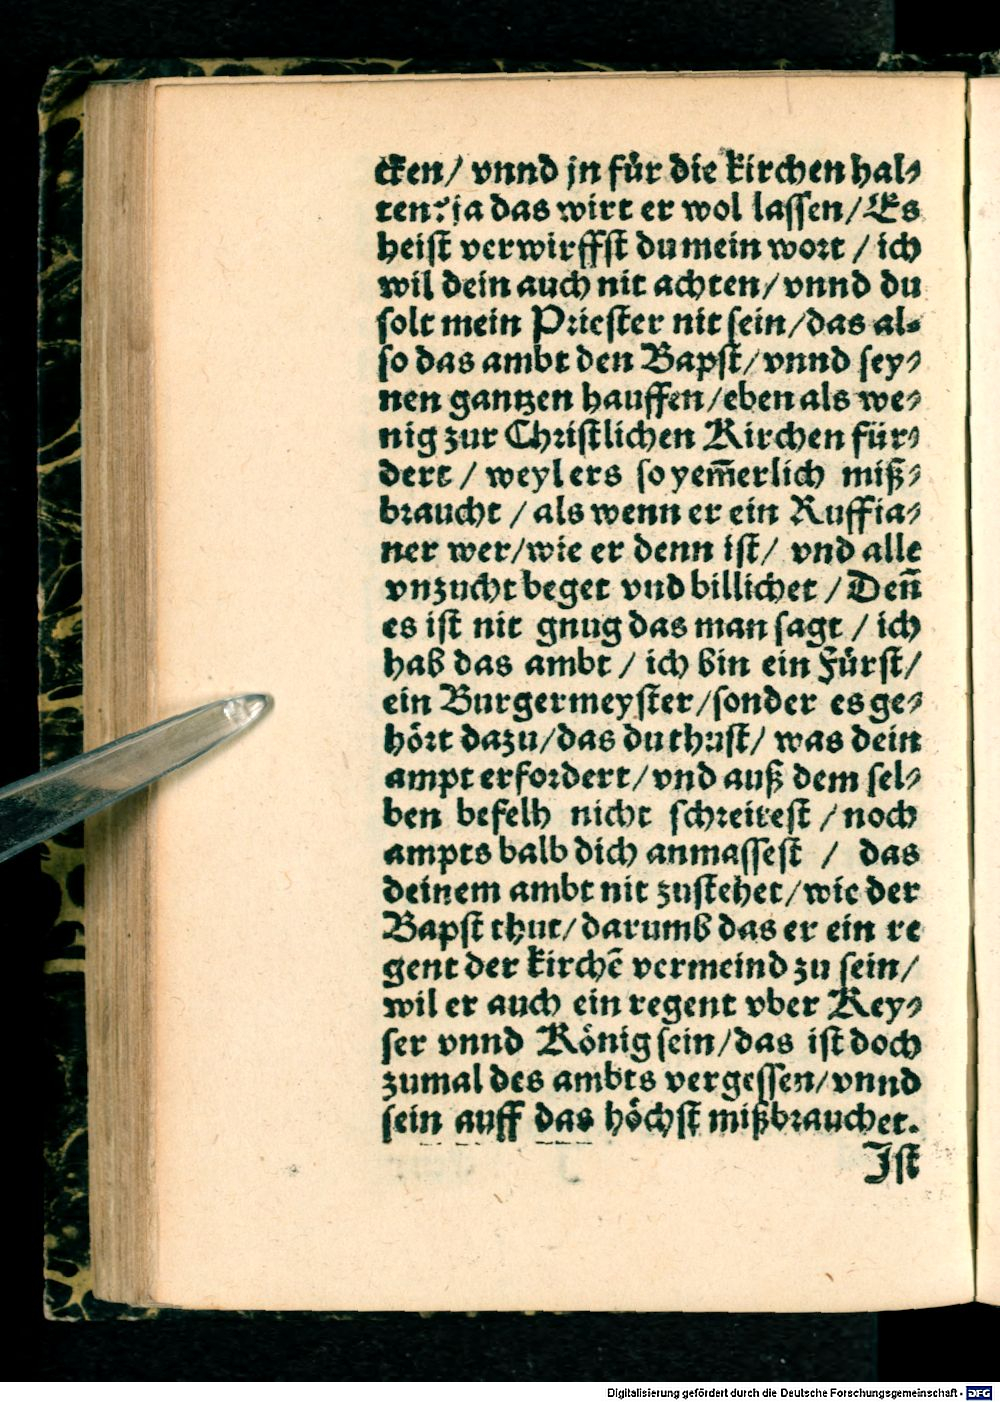 cken/ vnnd jn für die kirchen hal⸗
ten? ja das wirt er wol lassen/ Es
heist verwirffst du mein wort / ich
wil dein auch nit achten/ vnnd du
solt mein Priester nit sein/ das al⸗
so das ambt den Bapst/ vnnd sey⸗
nen gantzen hauffen/ eben als we⸗
nig zur Christlichen Kirchen für⸗
dert / weyl ers so yem̃erlich miß⸗
braucht / als wenn er ein Ruffia⸗
ner wer/ wie er denn ist/ vnd alle
vnzucht beget vnd billichet / Den̄
es ist nit gnug das man sagt / ich
hab das ambt / ich bin ein Fürst/
ein Burgermeyster/ sonder es ge⸗
hört dazu/ das du thust/ was dein
ampt erfordert/ vnd auß dem sel⸗
ben befelh nicht schreitest / noch
ampts halb dich anmassest / das
deinem ambt nit zustehet/ wie der
Bapst thut/ darumb das er ein re
gent der kirchē vermeind zu sein/
wil er auch ein regent vber Key⸗
ser vnnd König sein/ das ist doch
zumal des ambts vergessen/ vnnd
sein auff das höchst mißbrauchet.
Ist
Digitalisierung gefördert durch die Deutsche Forschungsgemeinschaft - DFG